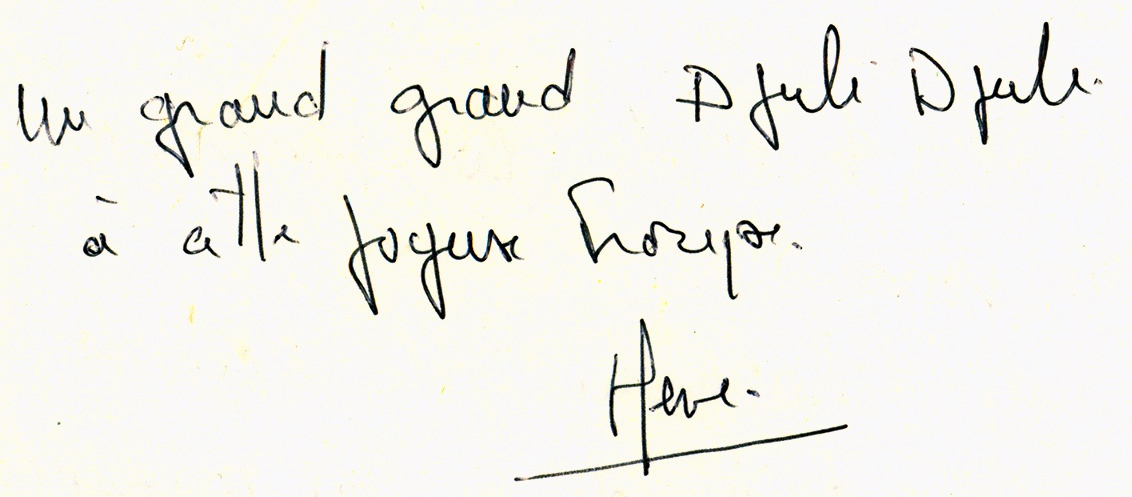 Un grand grand Djuli Djuli.
à cette joyeuse troupe.
Hervé.